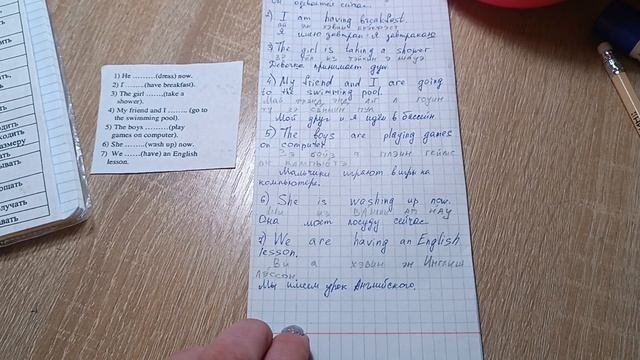 ходить
размеру
тывать
лучать
вать
1) He .........(dress) now.
2) I .......(have breakfast).
3) The girl .......(take a
shower).
4) My friend and I ....... (go to
the swimming pool).
5) The boys .........(play
games on computer).
6) She ........(wash up) now.
7) We .....(have) an English
lesson.
Он одевается сейчас
2) I am having breakfast.
Я имею завтрак. Я завтракаю
3) The girl is taking a shower
Девочка принимает душ.
4) My friend and I are going
to the swimming pool.
Мой друг и я идём в бассейн
5) The boys are playing games
on computer.
Мальчики играют в игры на
компьютере.
6) She is washing up now.
Она моет посуду сейчас
7) We are having an English
lesson.
Ви а хэвин эн Инглиш
лэссон.
Мы имеем урок Английского.